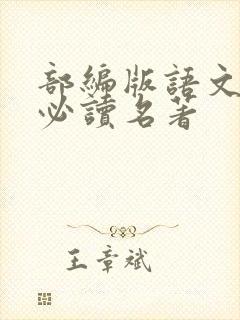 部編版語文
必讀名著
王章斌